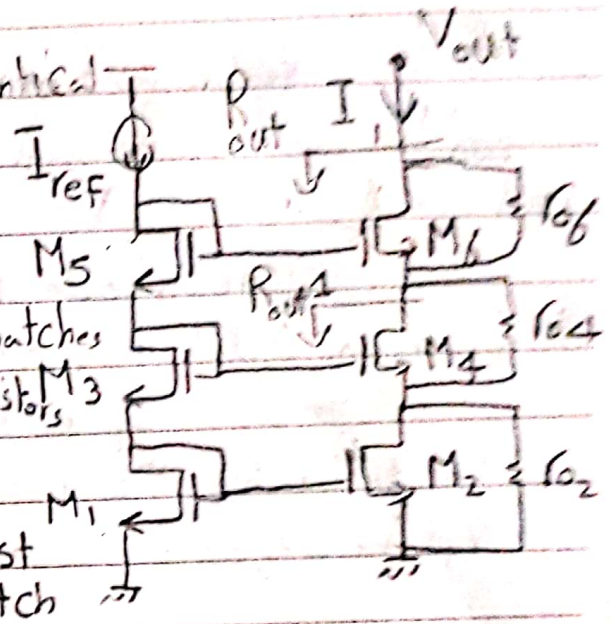 Vout
ntical
Rout
I
Iref
M5
M6
ro6
Rout1
atches
M4
ro4
istors
M3
M1
M2
ro2
st
tch